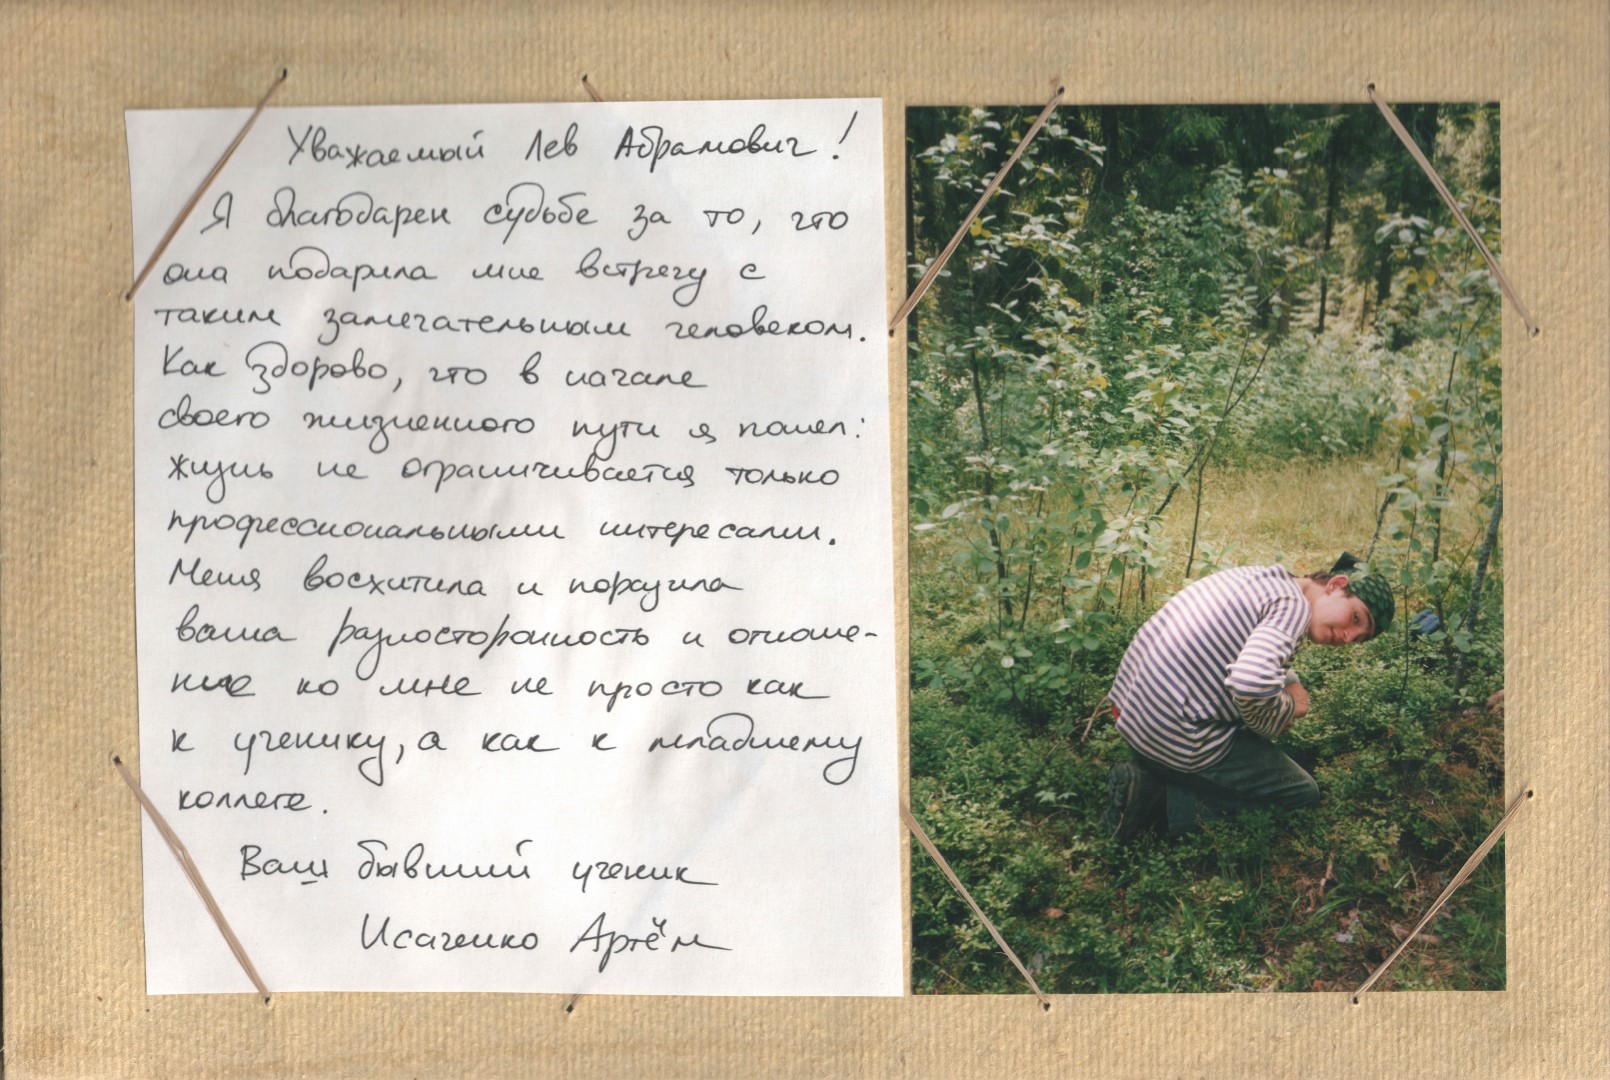 Уважаемый Лев Абрамович!
Я благодарен судьбе за то, что
она подарила мне встречу с
таким замечательным человеком.
Как здорово, что в начале
своего жизненного пути я понял:
жизнь не ограничивается только
профессиональными интересами.
Меня восхитила и поразила
ваша разносторонность и отноше-
ние ко мне не просто как
к ученику, а как к младшему
коллеге.
Ваш бывший ученик
Исаченко Артём